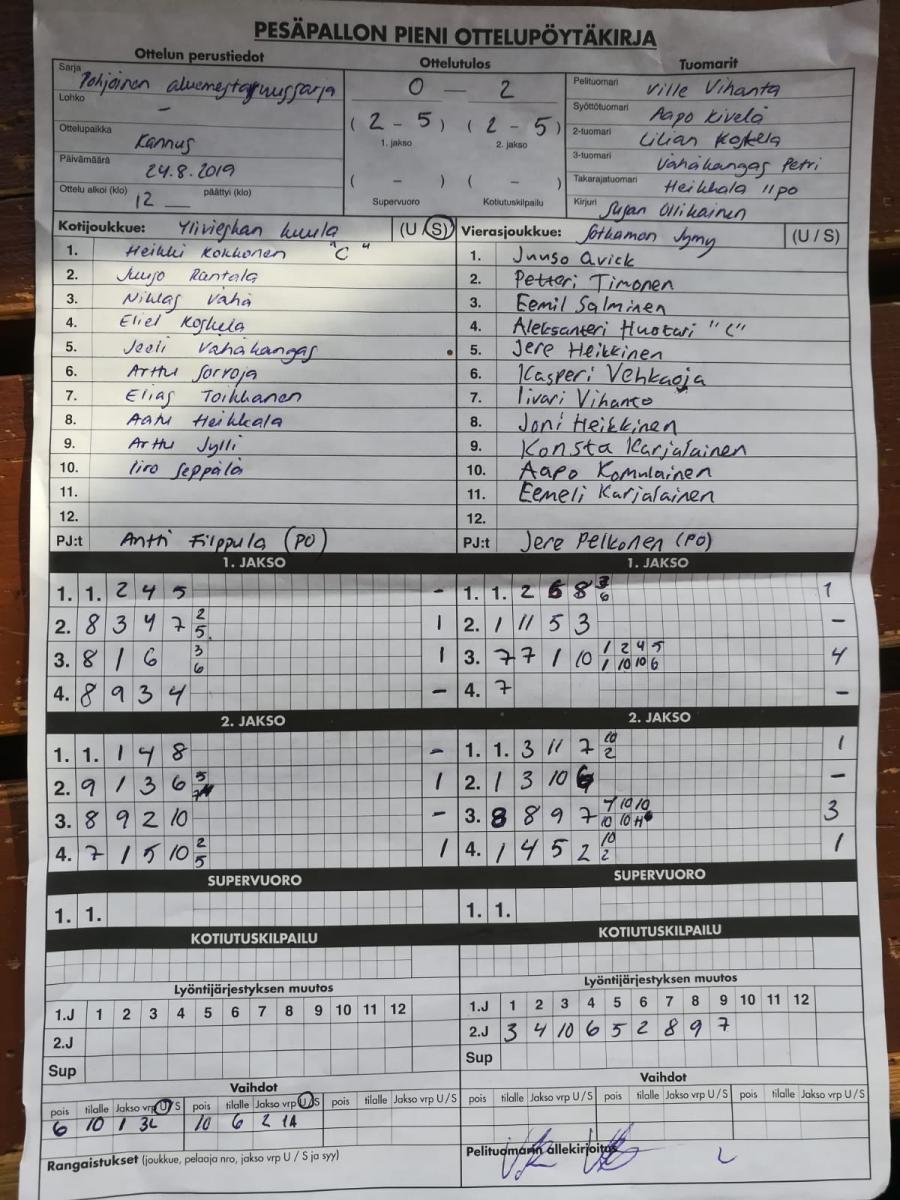 PESÄPALLON PIENI OTTELUPÖYTÄKIRJA
Ottelun perustiedot
Ottelutulos
Tuomarit
Sarja Pohjoinen aluemestaruussarja
Lohko –
Ottelupaikka Kannus
Päivämäärä 24.8.2019
Ottelu alkoi (klo) 12 päättyi (klo)
0 – 2
( 2 – 5 ) ( 2 – 5 )
1. jakso 2. jakso
( – ) ( – )
Supervuoro Kotiutuskilpailu
Pelituomari Ville Vihanta
Syöttötuomari Aapo Kivelä
2-tuomari Lilian Koskela
3-tuomari Vähäkangas Petri
Takarajatuomari Heikkala Ilpo
Kirjuri Ollikainen
Kotijoukkue: Ylivieskan Kuula (U / S)
1. Heikki Kokkonen "C"
2. Juuso Rantala
3. Niklas Vähä
4. Eliel Koskela
5. Vähäkangas
6. Arttu Sorroja
7. Elias Toikkanen
8. Aatu Heikkala
9. Arttu Jylli
10. Iiro Seppälä
11.
12.
PJ:t Antti Filppula (PO)
Vierasjoukkue: Sotkamon Jymy (U / S)
1. Juuso Qvick
2. Petteri Timonen
3. Eemil Salminen
4. Aleksanteri Huotari "C"
5. Jere Heikkinen
6. Kasperi Vehkaoja
7. Iivari Vihanto
8. Joni Heikkinen
9. Konsta Karjalainen
10. Aapo Komulainen
11. Eemeli Karjalainen
12.
PJ:t Jere Pelkonen (PO)
1. JAKSO
1. 1. 2 4 5 –
2. 8 3 4 7 2 5 1
3. 8 1 6 3 6 1
4. 8 9 3 4 –
1. JAKSO
1. 1. 2 6 8 6 1
2. 1 11 5 3 –
3. 7 7 1 10 1 2 4 5 1 10 10 6 4
4. 7 –
2. JAKSO
1. 1. 1 4 8 –
2. 9 1 3 6 5 1
3. 8 9 2 10 –
4. 7 1 5 10 2 5 1
2. JAKSO
1. 1. 3 11 7 10 2 1
2. 1 3 10 –
3. 8 8 9 7 10 10 10 10 3
4. 1 4 5 2 10 2 1
SUPERVUORO
1. 1.
SUPERVUORO
1. 1.
KOTIUTUSKILPAILU
KOTIUTUSKILPAILU
Lyöntijärjestyksen muutos
1.J 1 2 3 4 5 6 7 8 9 10 11 12
2.J
Sup
Lyöntijärjestyksen muutos
1.J 1 2 3 4 5 6 7 8 9 10 11 12
2.J 3 4 10 6 5 2 8 9 7
Sup
Vaihdot
pois tilalle Jakso vrp U / S pois tilalle Jakso vrp U / S pois tilalle Jakso vrp U / S
6 10 1 3L 10 6 2 1A
Vaihdot
pois tilalle Jakso vrp U / S pois tilalle Jakso vrp U / S pois tilalle Jakso vrp U / S
Rangaistukset (joukkue, pelaaja nro, jakso vrp U / S ja syy)
Pelituomarin allekirjoitus